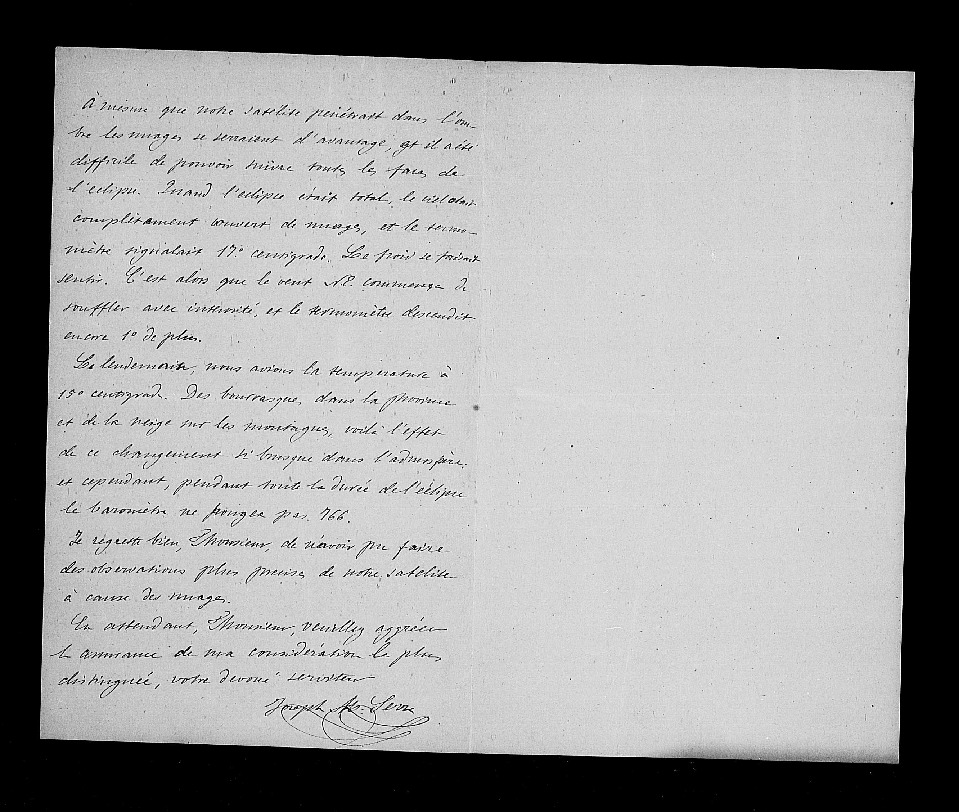 À mesure que notre satélite pénétrait dans l'om-
bre les nuages se serraient d'avantage, et il a été
difficile de pouvoir suivre toutes les faces de
l'eclipse. Quand l'eclipse était total, le ciel était
complètament couvert de nuages, et le termo-
mètre signalait 17° centigrade. Le froid se faisait
sentir. C'est alors que le vent NE commença à
souffler avec intensité, et le termomètre descendit
encore 1° de plus.
Le lendemain, nous avions la temperature à
15° centigrade. Des bourrasques dans la
et de la neige sur les montagnes, voilà l'effet
de ce changement si brusque dans l'admosfère;
et cependant, pendant toute la durée de l'éclipse
le baromètre ne bougea pas. 766.
Je regrette bien, Monsieur, de n'avoir pu faire
des observations plus precises de notre satelite
à cause des nuages.
En attendant, Monsieur, veuillez aggréer
l'assurance de ma considération la plus
distinguée, votre devoué serviteur
Joseph